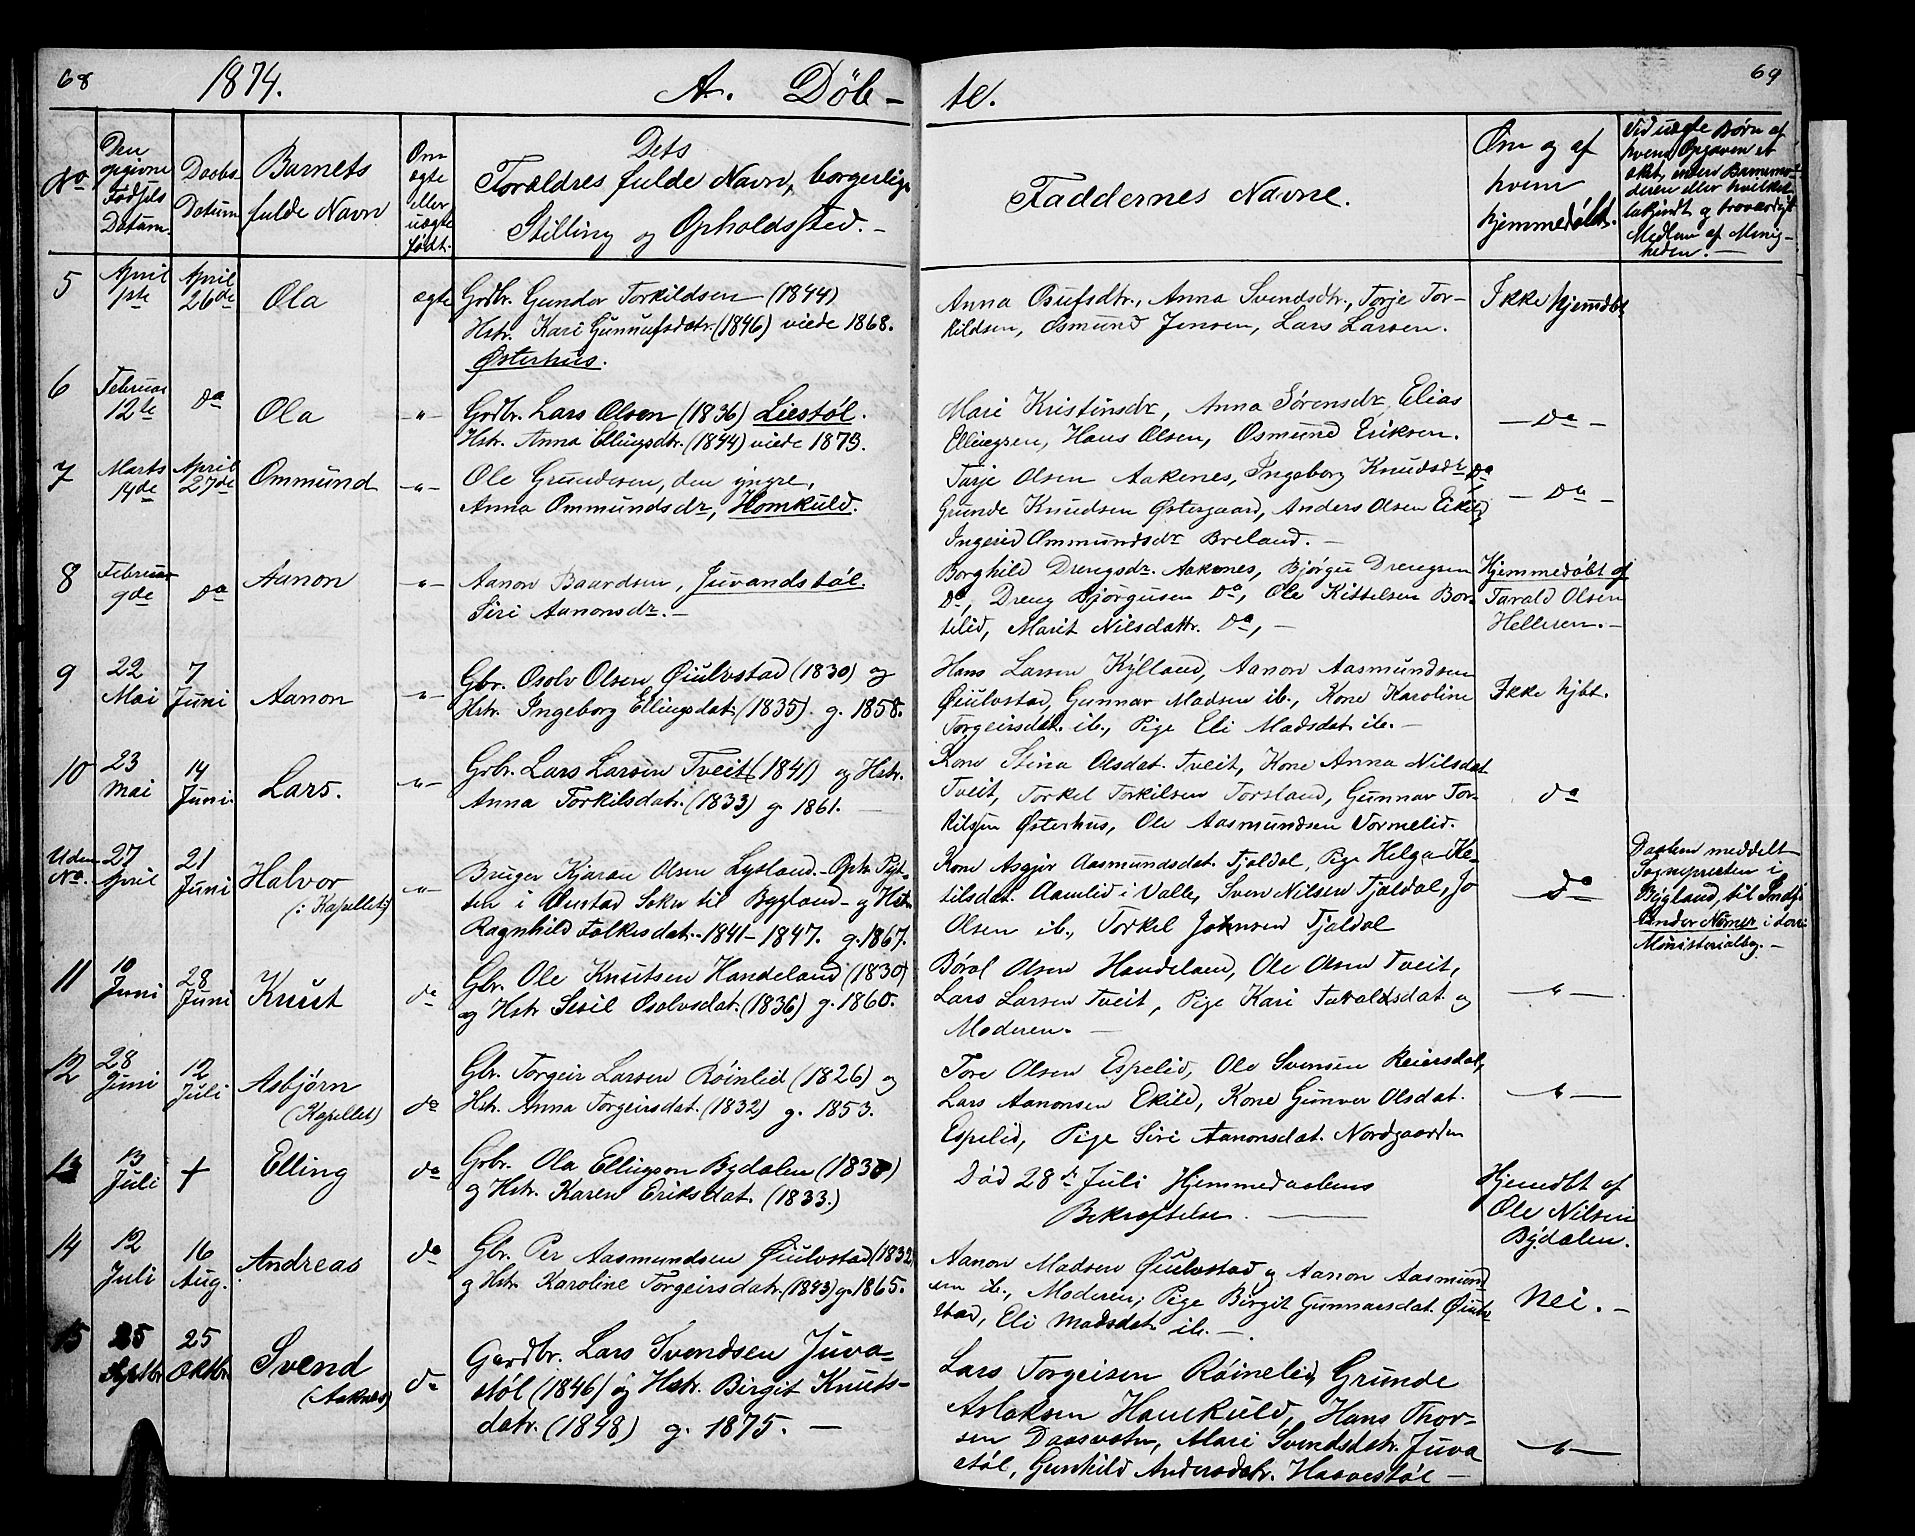 68 1874. A. Döb-
No
Den opgivne Fødsels Datum.
Daabs Datum
Barnets fulde Navn
Om ægte eller uægte født.
Dets Forældres fulde Navn, borgerlige Stilling og Opholdssted.-
5 April 1ste April 26de Ola ægte Grdbr. Gunder Torkildsen (1844)
Hstr. Kari Gunnufsdatr. (1846) viede 1868.
Østerhus.
6 Februar 12te do Ola -"- Grdbr. Lars Olsen (1836) Liestøl.
Hstr. Anna Ellingsdtr. (1844) viede 1873.
7 Marts 14de April 27de Ommund -"- Ole Grundesen, den yngre,
Anna Ommundsdr, Homkuld.
8 Februar 9de do Aanon -"- Aanon Baardsen, Juvandstøl.
Siri Aanonsdr.-
9 22 Mai 7 Juni Aanon -"- Gbr. Osolv Olsen Øiulvstad (1830) og
Hstr. Ingeborg Ellingsdat. (1835) g. 1858.
10 23 Mai 14 Juni Lars. -"- Grbr. Lars Larsen Tveit (1841) og Hstr.
Anna Torkilsdatr. (1833) g. 1861.
Uden No. 27 April 21 Juni Halvor (: Kapellet:) -"- Bruger Kjøran Olsen Lysland.- Oph.
i Øustad Sokn til Bygland- og Hstr
Ragnhild Folkesdat.- 1841-1847. g. 1867.
11 10 Juni 28 Juni Knut do Gbr. Ole Knutsen Handeland (1830)
og Hstr Sesil Osolvsdat. (1836) g. 1860.
12 28 Juni 12 Juli Asbjørn (Kapellet) do Gbr. Torgeir Larsen Røinlid (1826) og
Hstr. Anna Torgeirsdat. (1832) g. 1853.
13 13 Juli + Elling do Grbr. Ola Ellingson Bydalen
og Hstr. Karen Eriksdat. (1833.)
14 12 Juli 16 Aug. Andreas do Gbr. Per Aasmundsen Øiulvstad (1832)
og Hstr Karoline Torgeirsdatr. (1843) g. 1865.
15 25 Septbr. 25 Oktbr. Svend (Aaknes) do Gardbr. Lars Svendsen Juva-
støl (1846) og Hstr. Birgit Knuts-
datr. (1848) g. 1875. -
te. 69
Faddernes Navne.
Om og af hvem hjemmedøbt.
Vid uægte Børn af
hvem Opgaven et
sket, enten Barnemo-
deren eller hvilket
Medlem af Menig-
heden.-
Anna Osufsdtr., Anna Svendsdtr., Torje Tor- Ikke hjemdbt
kildsen, Osmund Jensen, Lars Larsen.
Mari Kristinsdr, Anna Sørensdr, Elias -do-
Ellingsen, Hans Olsen, Osmund Eriksen.
Tarje Olsen Aakenes, Ingeborg Knudsdr do -do-
Grunde Knudsen Østergaard, Anders Olsen Eikild,
Ingerid Ommundsdr Breland.-
Borghild Drengsdr. Aakenes, Bjørgu Drengsen Hjemmedøbt af
do, Dreng Bjørgusen do, Ole Kittelsen Bor- Tarald Olsen
telid, Marit Nilsdattr. do,- Helleren.-
Hans Larsen Kylland, Aanon Aasmundsen
Øiulvstad, Gunnar Madsen ib., Kone Karoline Ikke hjbt.
Torgeirsdat. ib., Pige Eli Madsdat ib.-
Kone Stina Olsdat. Tveit, Kone Anna Nilsdat
Tveit, Torkel Torkilsen Torsland, Gunnar Tor- do
kilsen Østerhus, Ole Aasmundsen Tormelid.
Kone Asgjer Aasmundsdat. Tjaldal, Pige Helga Ke-
tilsdat. Aamlid i Valle, Sven Nilsen Tjaldal, Jo do
Olsen ib., Torkel Johnsen Tjaldal
Daaben meddelt
Sogneprsten i
Bygland, til Indf.
under Numer i
Ministerialbog.-
Børol Olsen Handeland, Ole Olsen Tveit,
Lars Larsen Tveit, Pige Kari Taraldsdat. og -"-
Moderen.-
Tore Olsen Espelid, Ole Svensen Reiersdal,
Lars Aanonsen Ekild, Kone Gunver Olsdat. -"-
Espelid, Pige Siri Aanonsdat. Nordgaarden
Død 28de Juli Hjemmedaabens Hjemdbt af
Bekræftelse. Ole Nilsen
Bydalen.
Aanon Madsen Øiulvstad og Aanon Aasmund-
sen ib., Moderen; Pige Birgit Gunnarsdat. Øiulv- Nei.-
stad, Eli Madsdat ib.-
Lars Torgeisen Røinelid, Grunde
Aslaksen Homkuld, Hans Thor-
sen Daasvatn, Mari Svendsdatr. Juva -"-
støl, Gunhild Andersdatr. Haavestøl-